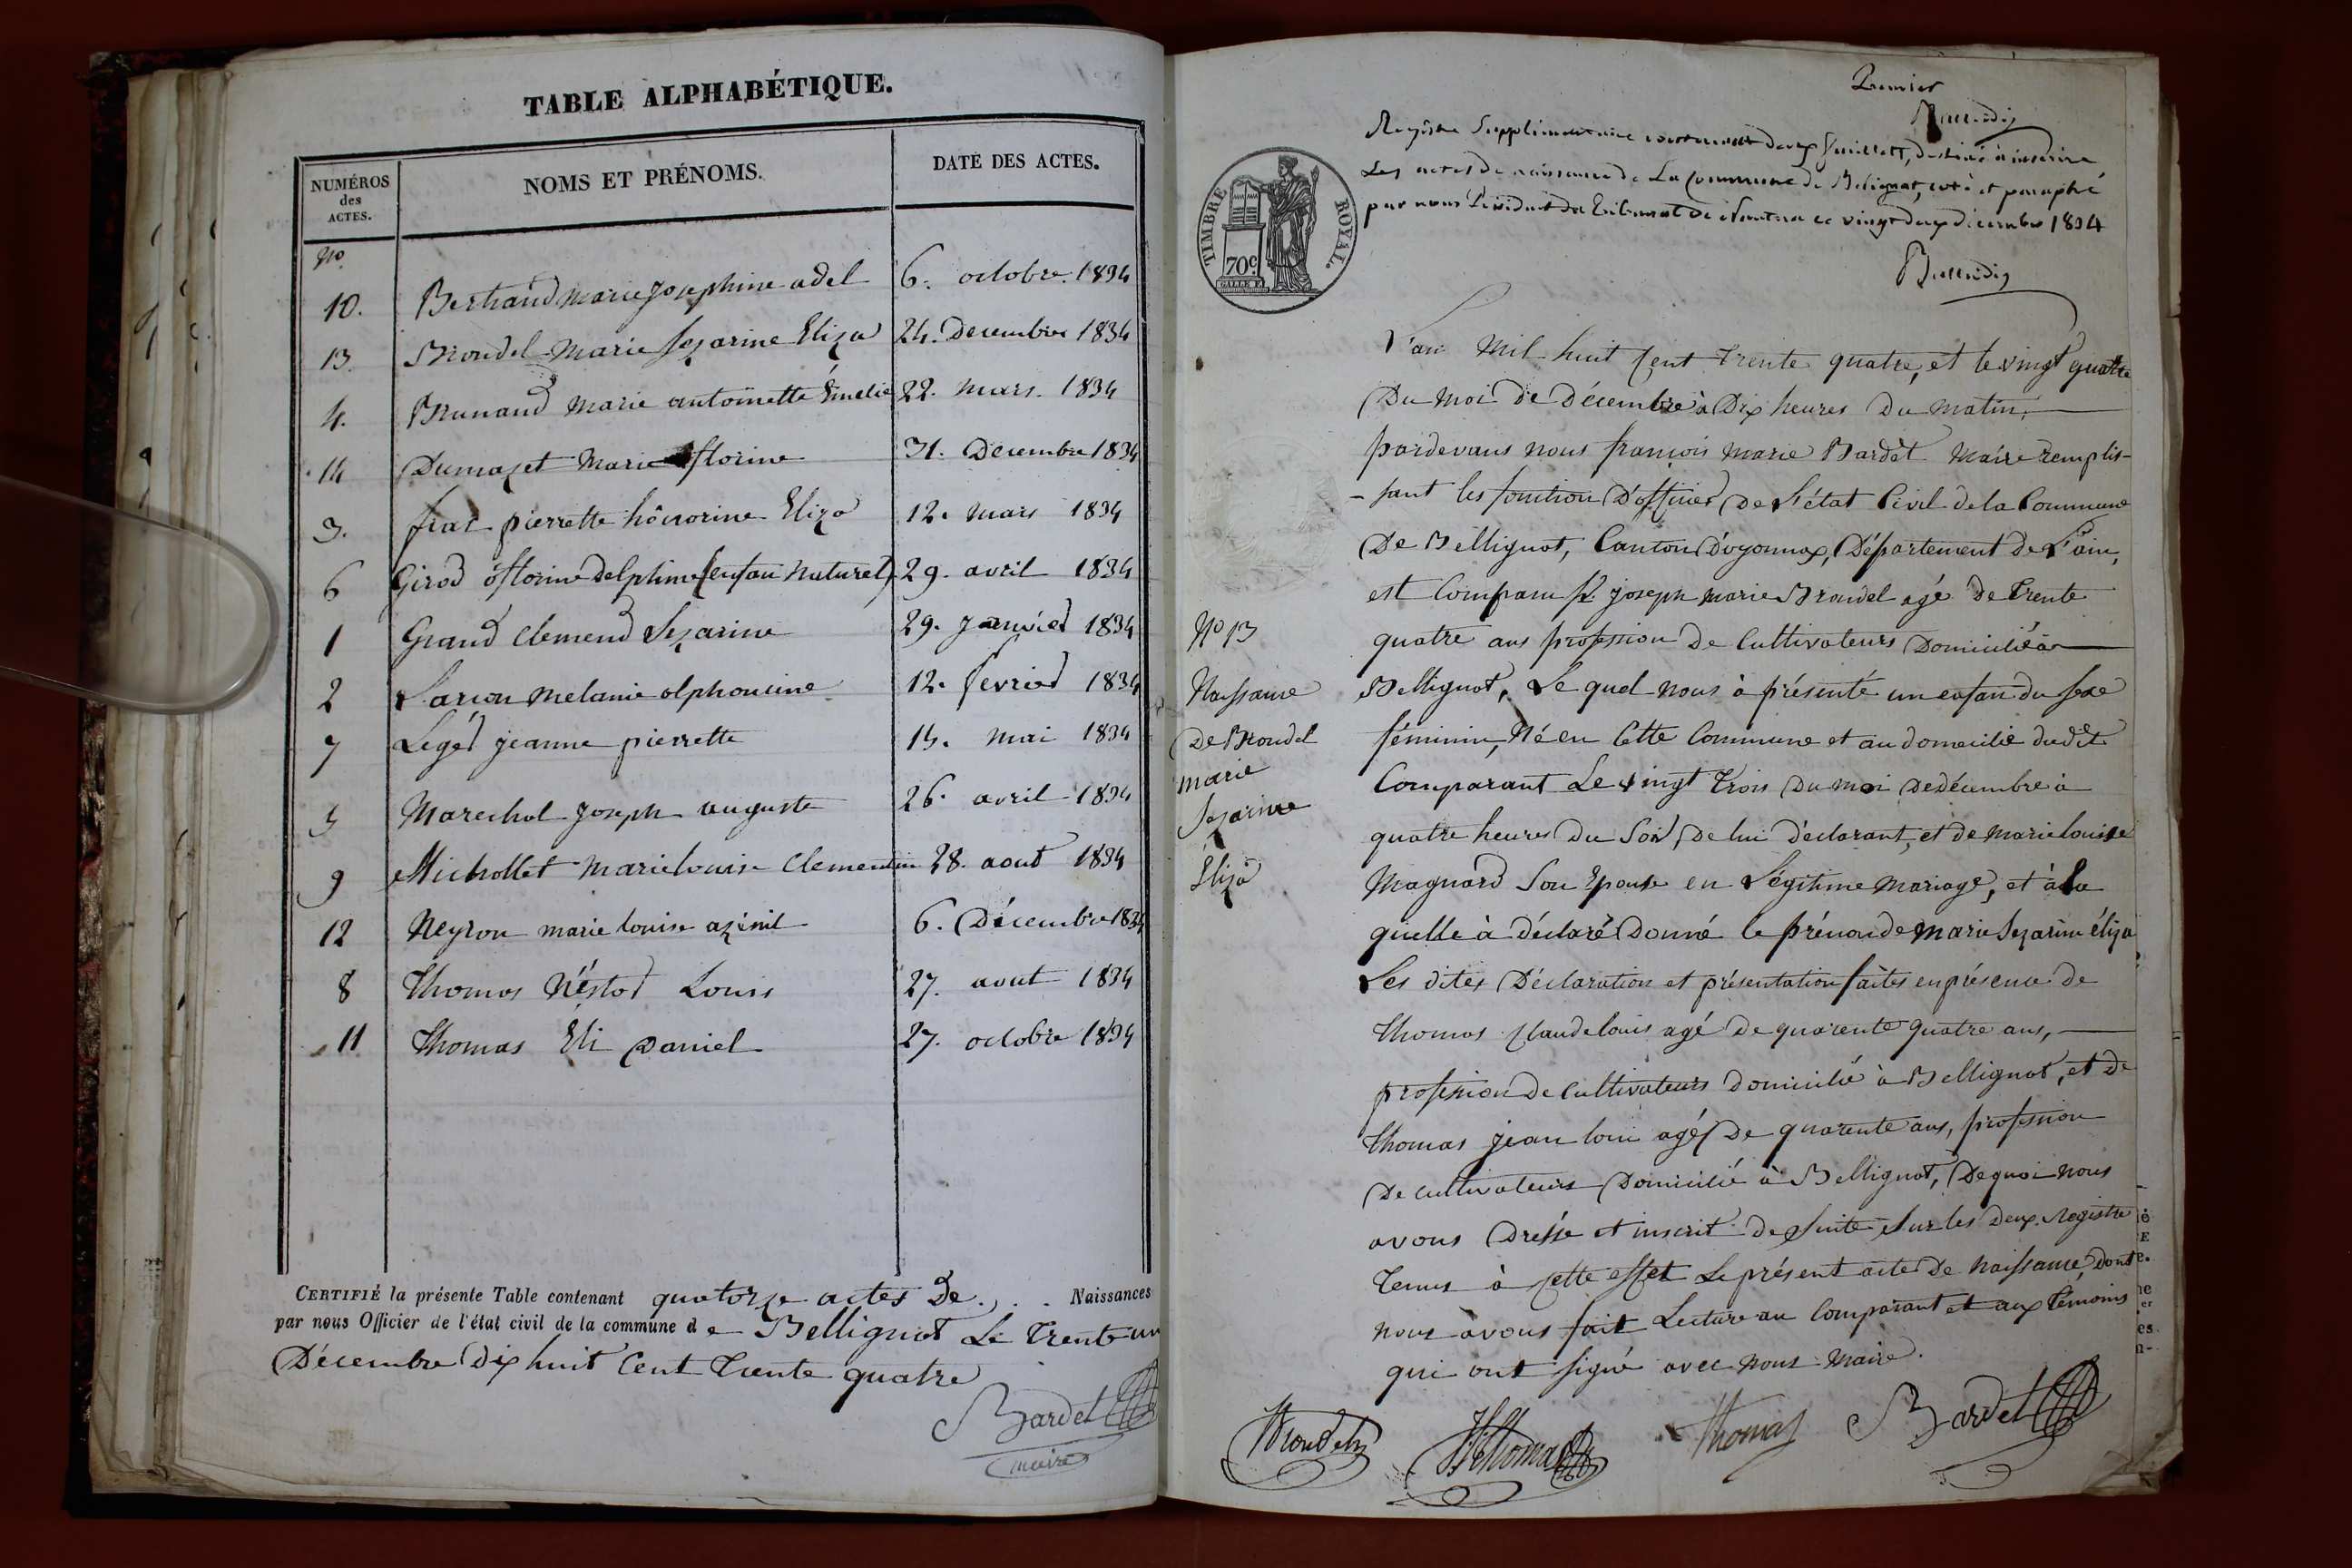 TABLE ALPHABÉTIQUE.
NUMÉROS des ACTES.
NOMS ET PRÉNOMS.
DATE DES ACTES.
No
10. Bertrand Marie josephine adel 6. octobre. 1834
13. Brondel Marie Sezarine Eliza 24. Decembre 1834
4. Brunand Marie antoinette Emelie 22. mars. 1834
14 Dumazet Marie florine 31. Decembre 1834
3. frar pierrette hônorine Eliza 12. mars 1834
6 Girod florine delphine (enfan Naturel) 29. avril 1834
1 Grand Clemend Sezarine 29. janvier 1834
2 Larion Melanie alphonsine 12. fevrier 1834
7 Léger jeanne pierrette 15. mai 1834
5 Marechal joseph auguste 26. avril 1834
9 Michollet Marie louise Clementin 28. aout 1834
12 Neyron marie louise azénil 6. Décembre 1834
8 Thomas Néstor Louis 27. aout 1834
11 Thomas Eli Daniel 27. octobre 1834
CERTIFIÉ la présente Table contenant quatorze actes de . . . Naissances
par nous Officier de l'état civil de la commune de Bellignat Le Trente un
Décembre Dix huit Cent Trente quatre
Bardet
maire
Premier
Registre Supplémentaire contenant deux feuillets, destiné à inscrire
Les actes de naissance de La Commune de Bélignat, coté et paraphé
par nous Président du Tribunal de Nantua ce vingt deux décembre 1834
TIMBRE ROYAL.
70c
L'an Mil huit Cent Trente quatre, et le vingt quatre
Du Moi de Décembre à Dix heures Du Matin,
pardevans nous françois Marie Bardet Maire remplis-
-sant les fonction D'officier De L'état Civil de la Commune
De Bellignat, Canton d'oyonnax, Département de L'ain,
est Comparu Sr joseph marie Brondel agé De Trente
No 13
quatre ans profession De Cultivateurs Domicilié à
Naissance
De Brondel
marie
Sezarine
Eliza
Bellignat, Le quel nous à présenté un enfan du sexe
féminin, Né en Cette Commune et au domecilie dudit
Comparant Le vingt Trois Du moi De décembre à
quatre heures Du Soir De lui déclarant, et de Marie louise
Magnard Son Epouse en Légitime Mariage, et à la
quelle à déclaré Donné le prénon de Marie Sezarine éliza
Les dites Déclaration et présentation faites en présence De
Thomas Claude louis agé De quarente quatre ans,
profession De Cultivateurs Domicilié à Bellignat, et De
Thomas jean loui agé De quarente ans, profession
De cultivateurs Domicilié à Bellignat, De quoi nous
avons Dressé et inscrit De Suite Sur les Deux Registre
Tenus à cette effet Le présent acte De Naissance, Dont
nous avons fait Lecture au Comparant et aux Témoins
qui ont signé avec nous Maire.
Brondel Thomas Thomas Bardet